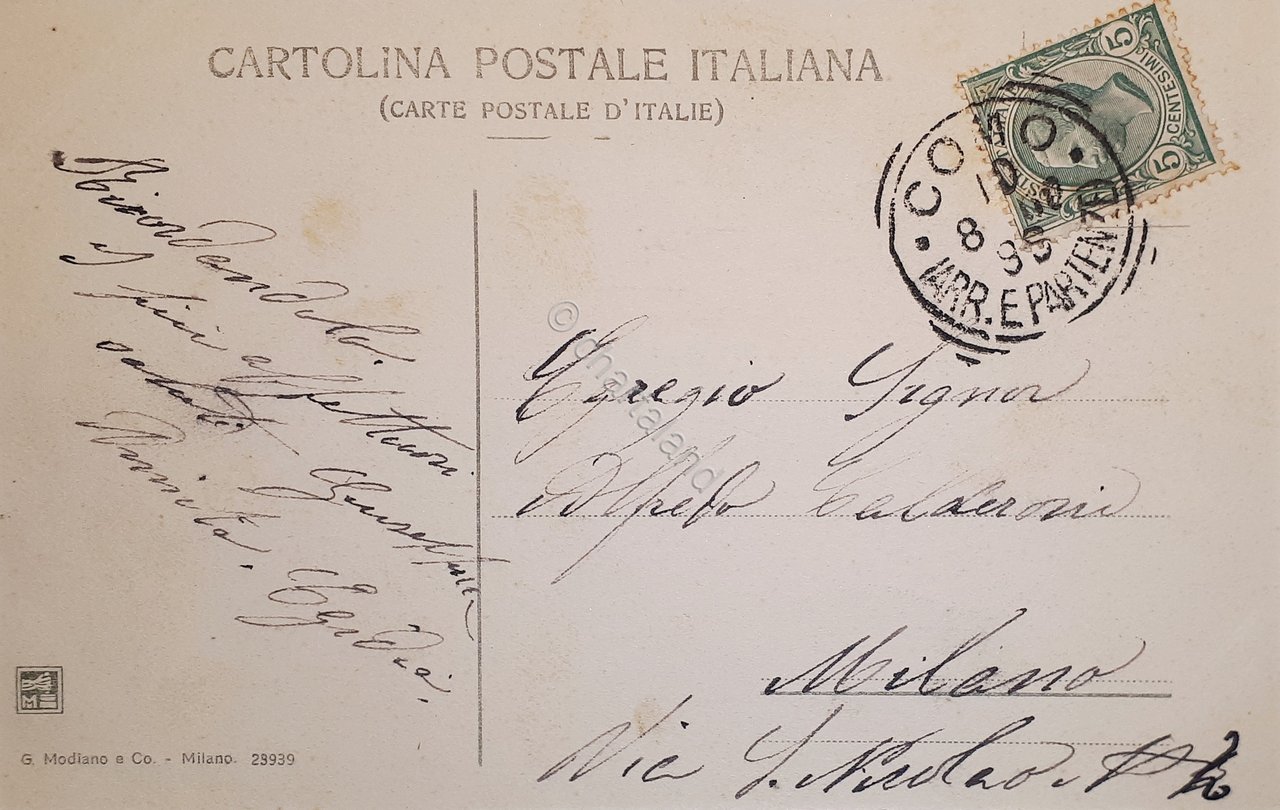 CARTOLINA POSTALE ITALIANA
(CARTE POSTALE D'ITALIE)
5 CENTESIMI 5
COMO
10
8 95
(ARR. E PARTENZE)
Ricordandola.
I più affettuosi
saluti Giuseppina
Annita. Egidia.
© chartaland
Egregio Signor
Alfredo Calderoni
Milano
Via S. Nicolao N
M
G. Modiano e Co. - Milano. 28939